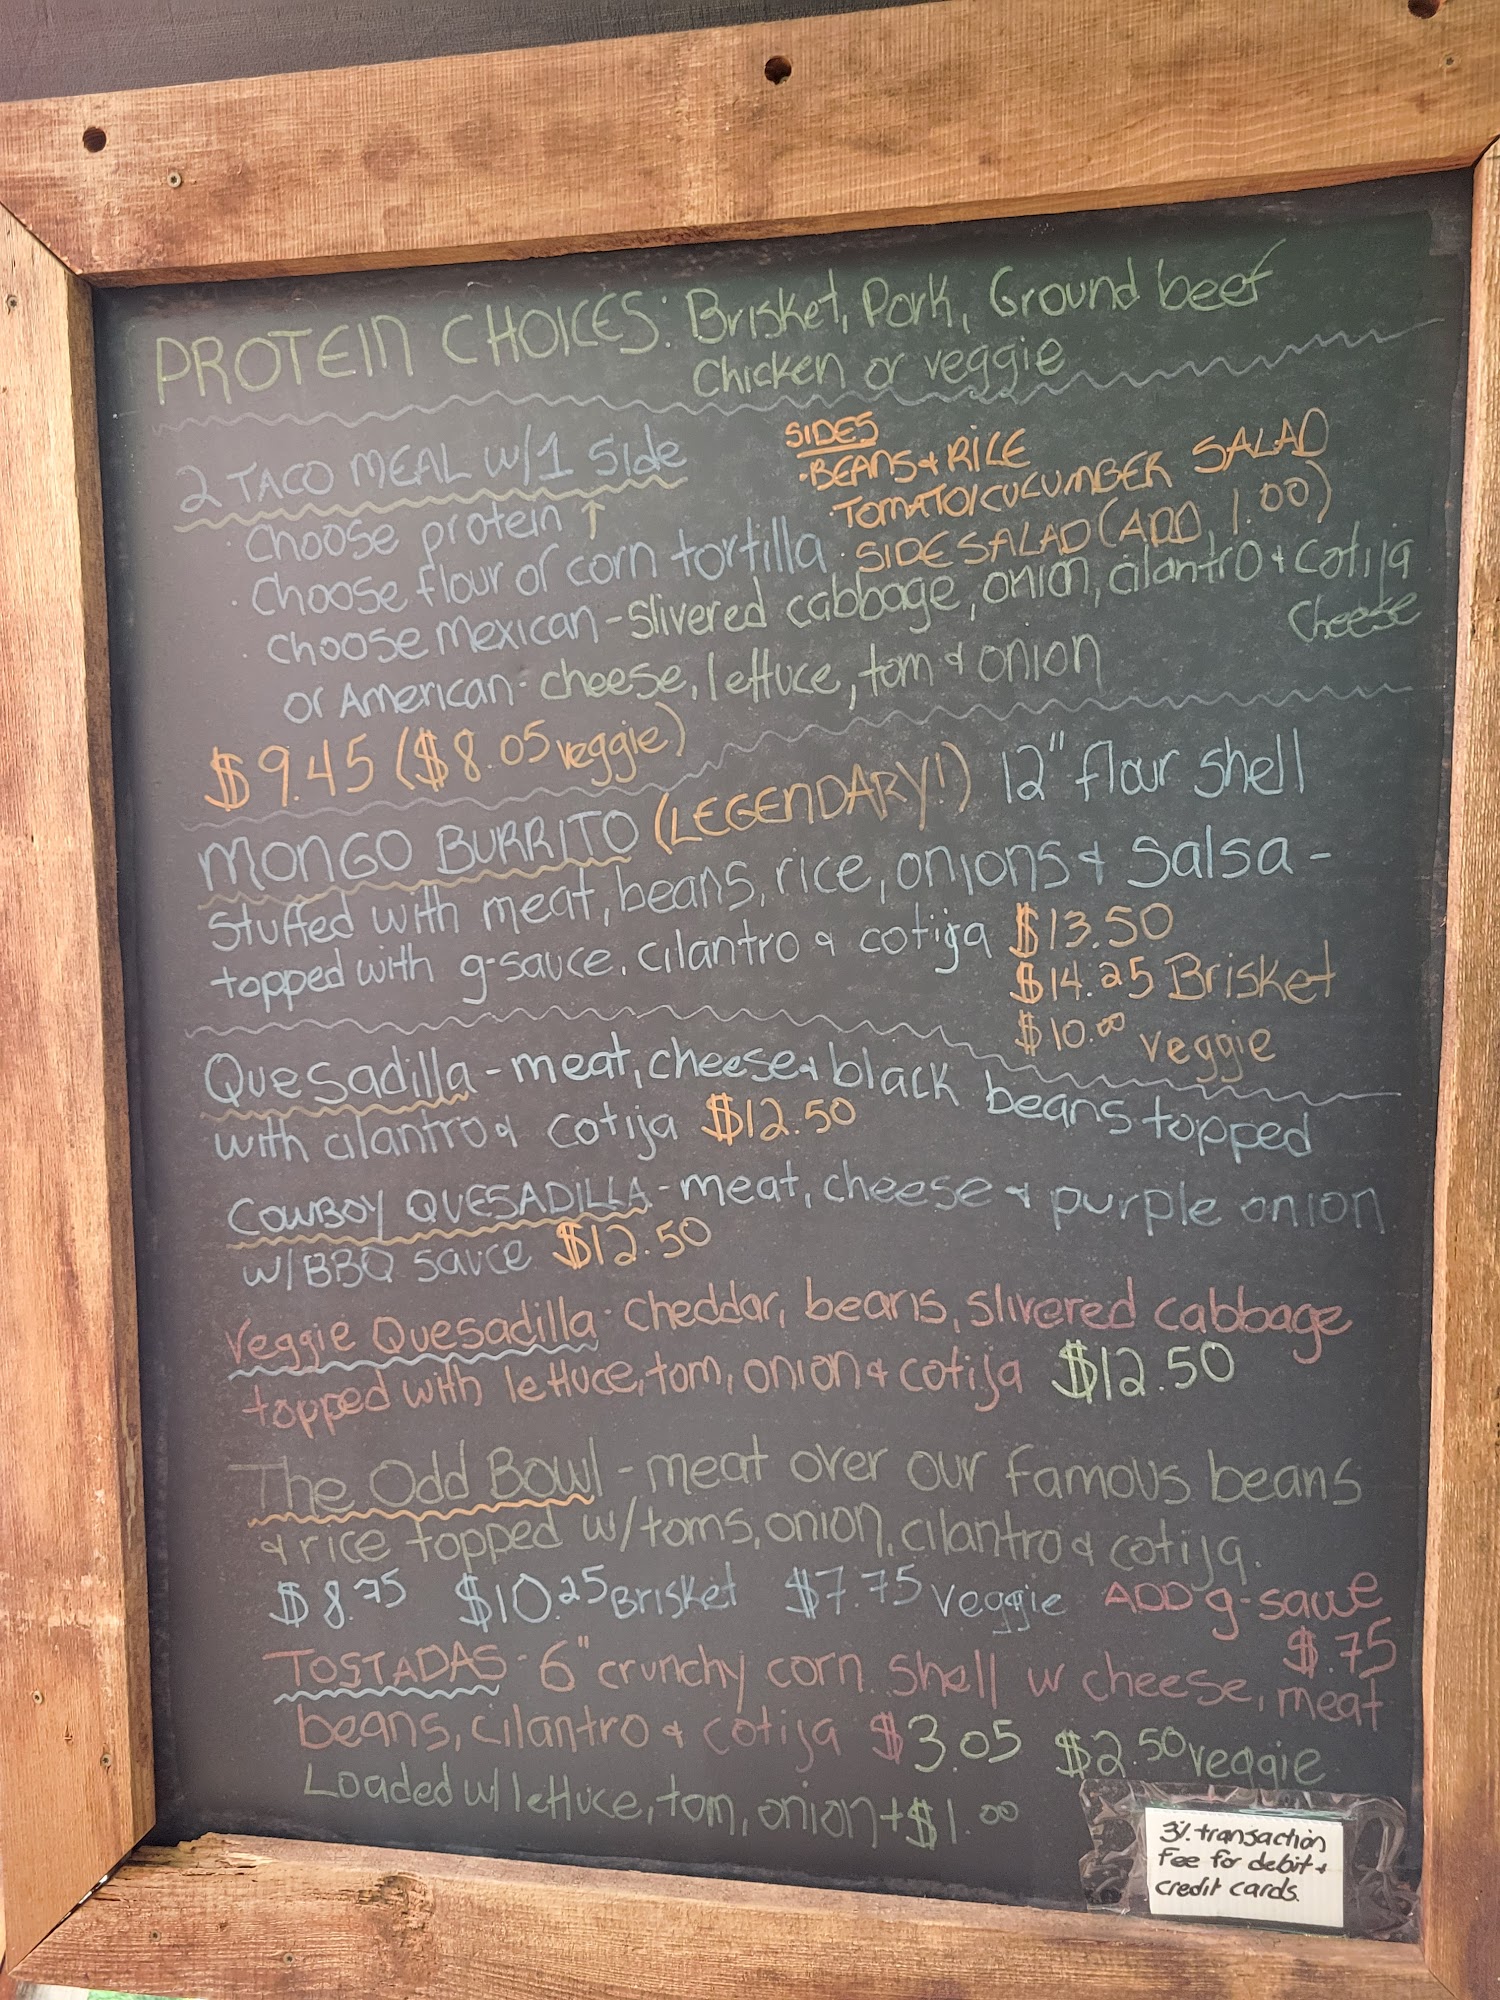 PROTEIN CHOICES: Brisket, Pork, Ground beef
Chicken or veggie
2 TACO MEAL W/1 Side
· Choose protein ↑
· Choose flour or corn tortilla
· Choose Mexican - Slivered cabbage, onion, cilantro & cotija
Cheese
or American - cheese, lettuce, tom & onion
$9.45 ($8.05 veggie)
SIDES
· BEANS & RICE
· TOMATO/CUCUMBER SALAD
· SIDE SALAD (ADD 1.00)
MONGO BURRITO (LEGENDARY!) 12" flour shell
Stuffed with meat, beans, rice, onions & salsa -
topped with g-sauce, cilantro & cotija $13.50
$14.25 Brisket
$10.00 veggie
Quesadilla - meat, cheese & black beans topped
with cilantro & cotija $12.50
COWBOY QUESADILLA - meat, cheese & purple onion
w/BBQ sauce $12.50
Veggie Quesadilla - Cheddar, beans, slivered cabbage
topped with lettuce, tom, onion & cotija $12.50
The Odd Bowl - meat over our famous beans
& rice topped w/toms, onion, cilantro & cotija.
$8.75 $10.25 Brisket $7.75 Veggie ADD g-sauce
$.75
TOSTADAS - 6" crunchy corn shell w cheese, meat
beans, cilantro & cotija $3.05 $2.50 veggie
Loaded w/lettuce, tom, onion + $1.00
3% transaction
Fee for debit &
credit cards.